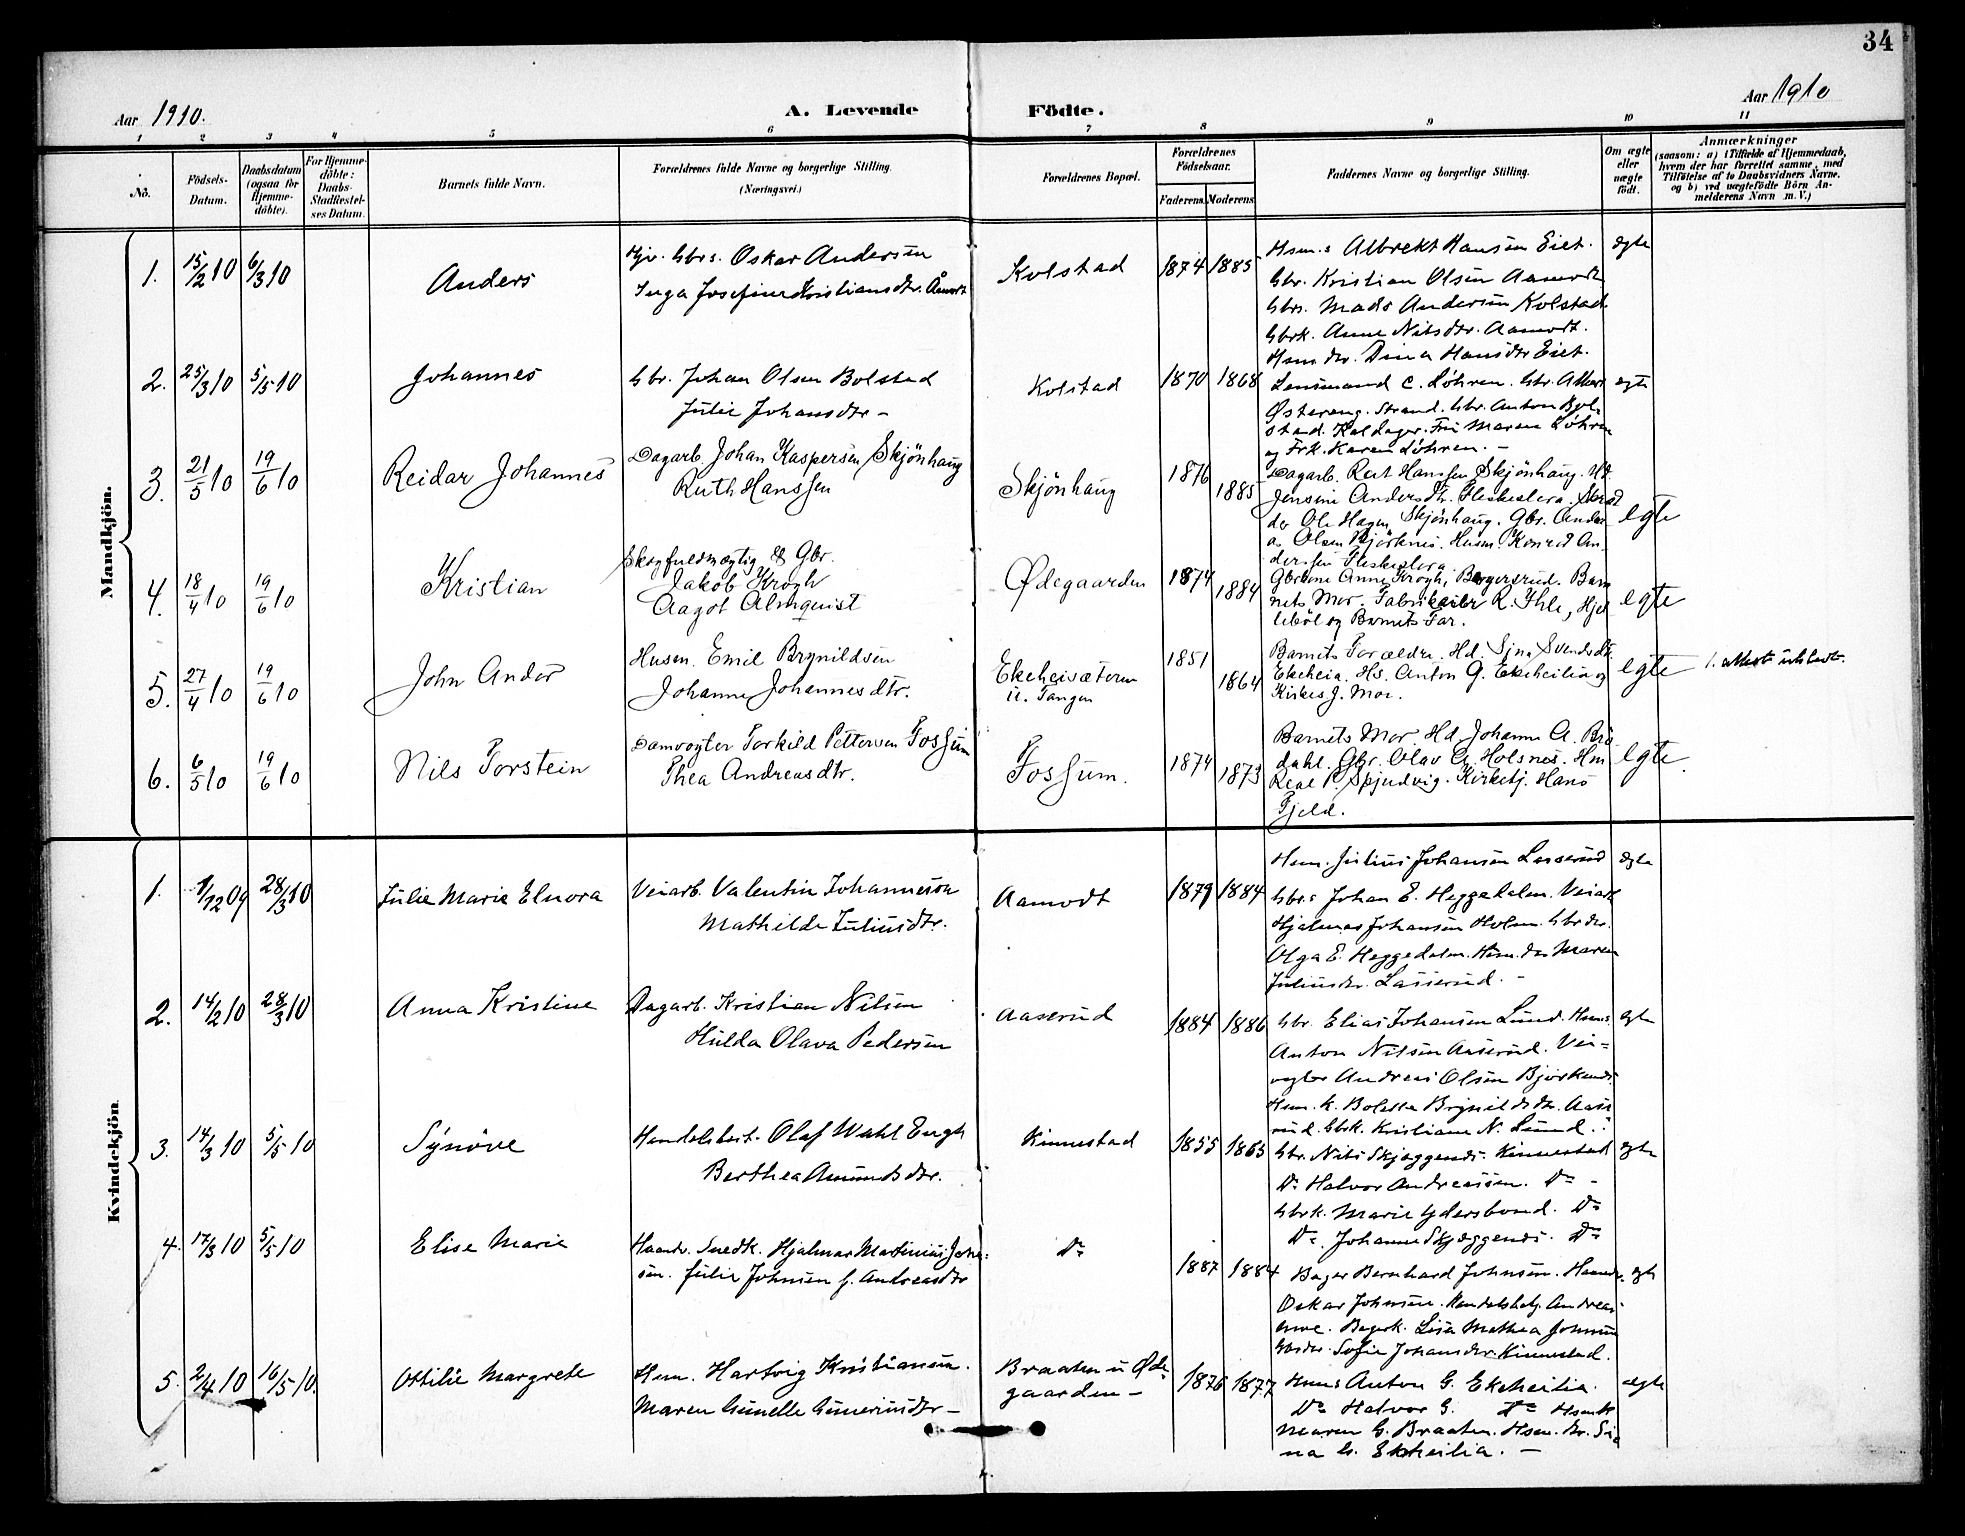 34
Aar 1910.
A. Levende Födte.
Aar 1910
1 2 3 4 5 6 7 8 9 10 11
No.
Födsels-Datum.
Daabsdatum (ogsaa for Hjemmedöbte).
For Hjemmedöbte: Daabs-Stadfæstelses Datum.
Barnets fulde Navn.
Forældrenes fulde Navne og borgerlige Stilling.
(Næringsvei.)
Forældrenes Bopæl.
Forældrenes Födselsaar.
Faderens. Moderens.
Faddernes Navne og borgerlige Stilling.
Om ægte eller uægte födt.
Anmærkninger
(saasom: a) i Tilfælde af Hjemmedaab,
hvem der har forrettet samme, med
Tilföielse af to Daabsvidners Navne,
og b) ved uægtefödte Börn An-
melderens Navn m. V.)
Mandkjön.
1. 15/2 10 6/3 10 Anders
Oskar Andersen
Inga Josefine Kristiansdtr. Åmodt
Kolstad 1874 1885
Hsm.s Albrekt Hansen Eiet.
Gbr. Kristian Olsen Aamodt
Gbrs. Mads Andersen Kolstad
Gbrk. Anne Nilsdtr. Aamodt.
Hsm dtr. Dina Hansdtr Eiet.
ægte
2. 25/3 10 5/5 10 Johannes
Gbr. Johan Olsen Bolstad
Julie Johansdtr -
Kolstad 1870 1868
Lensmand C. Løhren. Gbr. Albert
Østereng. Strand. Gbr. Anton Bol-
stad. Maren Løhren
og Frk. Karen Løhren. -
ægte
3. 21/5 10 19/6 10 Reidar Johannes
Dagarb. Johan Kaspersen Skjönhaug
Ruth Hanssen
Skjönhaug 1876 1885
Dagarb. Hanssen Skjönhaug. Hd.
Jensine Andersdtr. Fleskeslora.
der Ole Hagen Skjönhaug. Gbr. Ander
a. Olsen Björknes. Husm. Konrad An-
dersen Fleskeslora
egte
4. 18/4 10 19/6 10 Kristian
Skogfuldmægtig & Gbr.
Jakob Krogh
Aagot Almquist
Ødegaarden 1874 1884
Anne Krogh, Bergersrud. Bar-
nets Mor. R. Ihle, Hjel-
leböl og Barnets Far.
egte
5. 27/4 10 19/6 10 John Andor
Husm. Emil Brynildsen
Johanne Johannesdtr.
Ekeheisæteren
u. Tangen
1851 1864
Barnets Forældre. Hd. Svendsdtr.
Ekeheia. Hs. Anton G. Ekeheilia og
Kirkesj. Moe.
egte
6. 6/5 10 19/6 10 Nils Torstein
Damvogter Torkild Pettersen Fossum
Thea Andreasdtr.
Fossum. 1874 1873
Barnets Mor Hd Johanne A. Brö-
dahl. Gbr. Olav A. Holsnes. Hm
P. Spjudvig. Kirketj. Hans
Fjeld.
egte.
Kvindekjön
1. 1/12 09 28/3 10 Julie Marie Elnora
Veiarb. Valentin Johannesen
Mathilde Juliusdtr.
Aamodt 1879 1884
Hsm. Julius Johansen Lasserud
Gbr.s Johan E. Heggedalen. Veiarb
Hjalmar Johansen Holm. Gbr dtr.
Olga E. Heggedalen. Hsm. dtr Maren
Juliusdtr. Lasserud. -
ægte
2. 14/2 10 28/3 10 Anna Kristine
Dagarb. Kristian Nilsen
Hulda Olava Pedersen
Aaserud 1884 1886
Gbr. Elias Johansen Lund. Hsms.
Anton Nilsen Aaserud. Vei-
vogter Andreas Olsen
Hsm. k. Bolette Brynildsdtr. Aase-
rud. Gbrk. Kristiane N. Lund.
ægte
3. 14/3 10 5/5 10 Synöve
Handelsbest. Olaf Wahl Engh
Berthea Amundsdtr.
Kinnestad 1855 1865
Gbr. Nils Skjæggenes. Kinnestad
Do Halvor Andreassen. Do -
Gbrk. Marie Ydersbond. Do
Do. Johanne Skjæggenes. Do
ægte
4. 17/3 10 5/5 10 Elise Marie
Haandv. Snedk. Hjalmar Martinius John-
sen. Julie Johnsen f. Andreasdtr
Do 1887 1884
Bager Bernhard Johnsen.
Oskar Johnsen. Andreas
Moe. Bagerk. Lisa Mathea Johnsen
Sofie Johansdtr. Kinnestad.
ægte
5. 2/4 10 16/5 10. Ottilie Margrete
Hsm. Hartvig Kristiansen.
Maren Gunelle Gunerinsdtr -
Braaten u Øde-
gaarden - 1876 1877
Hsms Anton G. Ekeheilia.
Do Halvor G. Do Hsmk
Maren G. Braaten. Hsm. dtr. Si-
na G. Ekeheilia. -
ægte